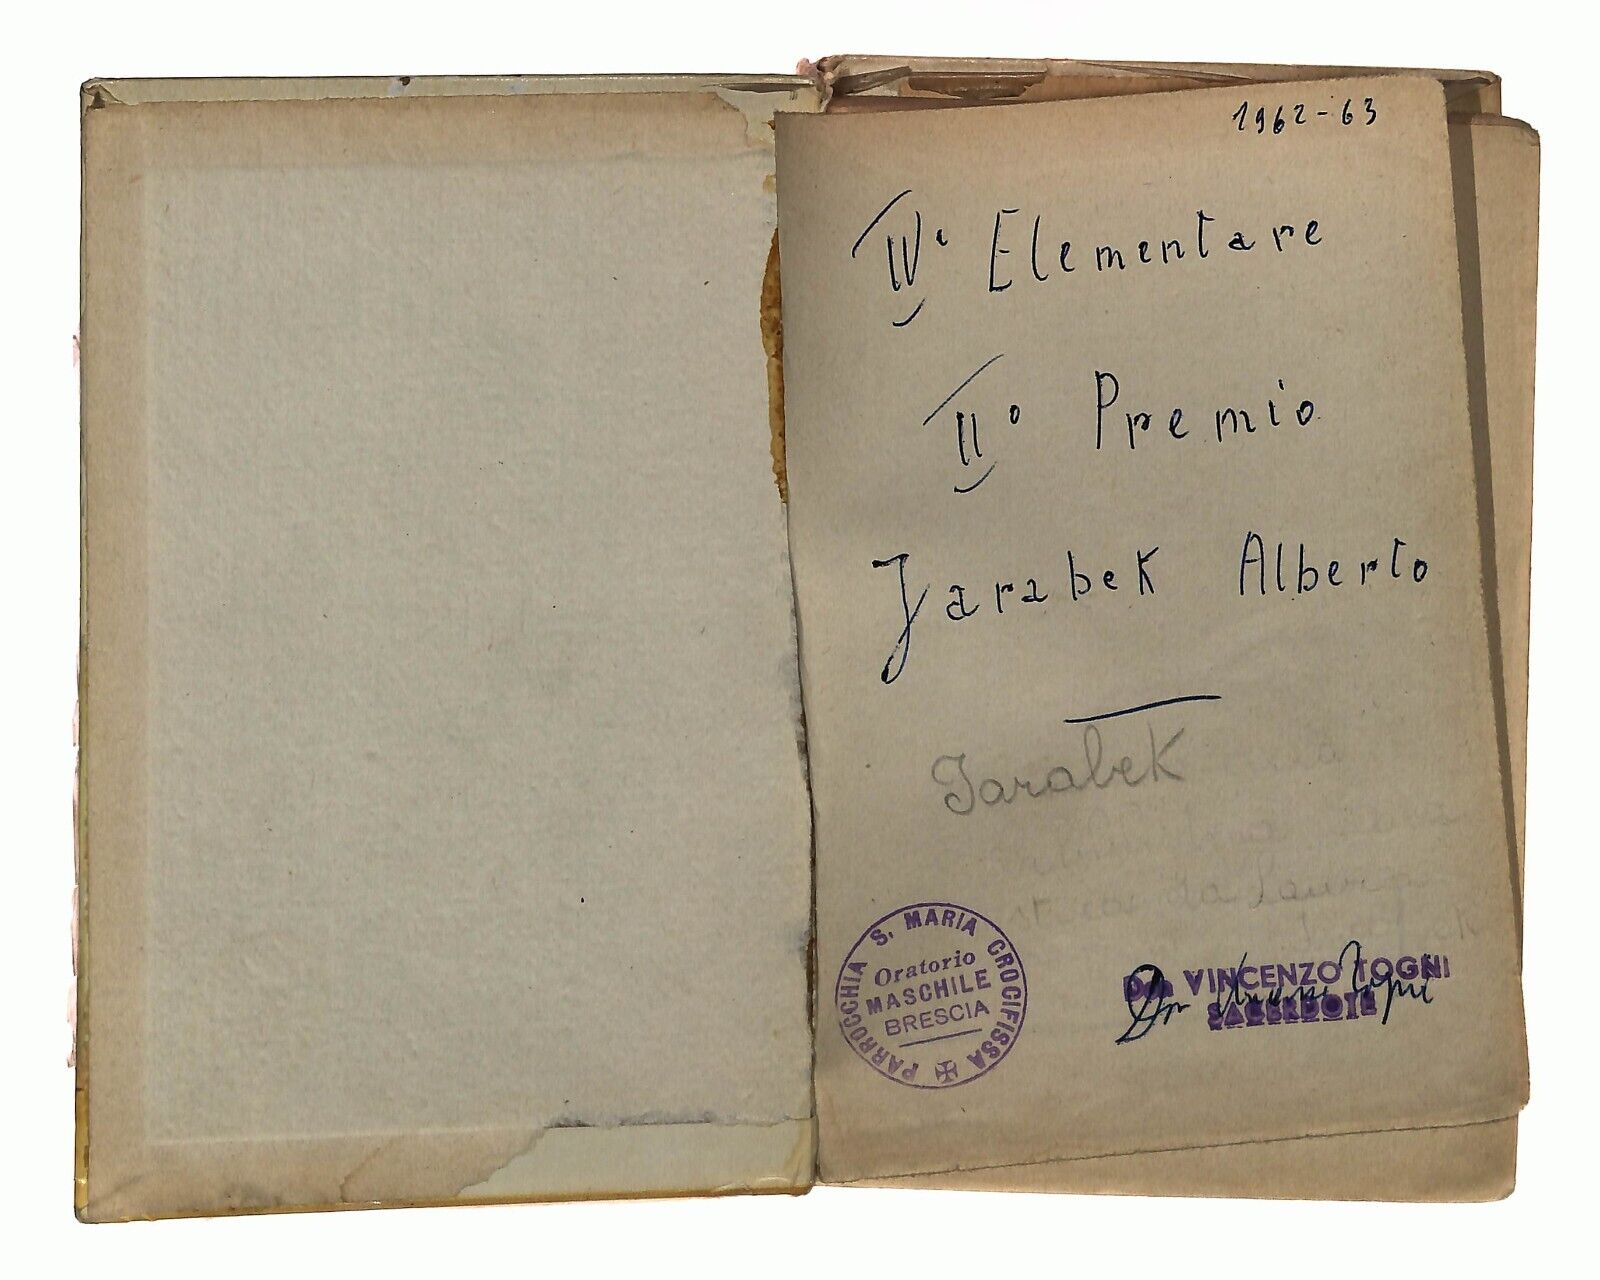 1962-63
IVª Elementare
IIº Premio
Jarabek Alberto
Jarabek
PARROCCHIA S. MARIA CROCIFISSA
Oratorio
MASCHILE
BRESCIA
Don VINCENZO TOGNI
SACERDOTE
Don Vincenzo Togni